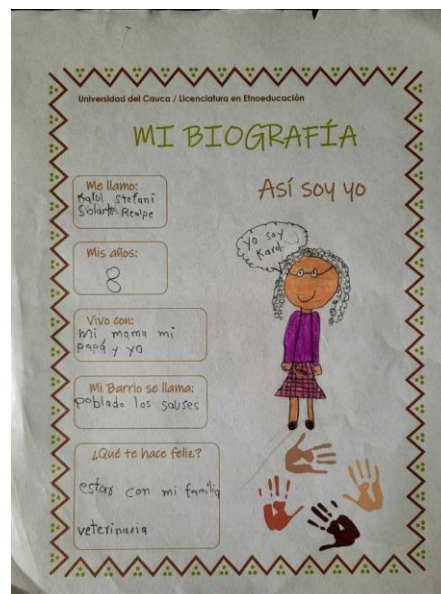 Universidad del Cauca / Licenciatura en Etnoeducación
MI BIOGRAFÍA
Me llamo:
Karol Stefani
Solarte Realpe
Así soy yo
yo soy
Karol
Mis años:
8
Vivo con:
mi mama mi
papá y yo
Mi Barrio se llama:
poblado los sauses
¿Qué te hace feliz?
estar con mi familia
veterinaria